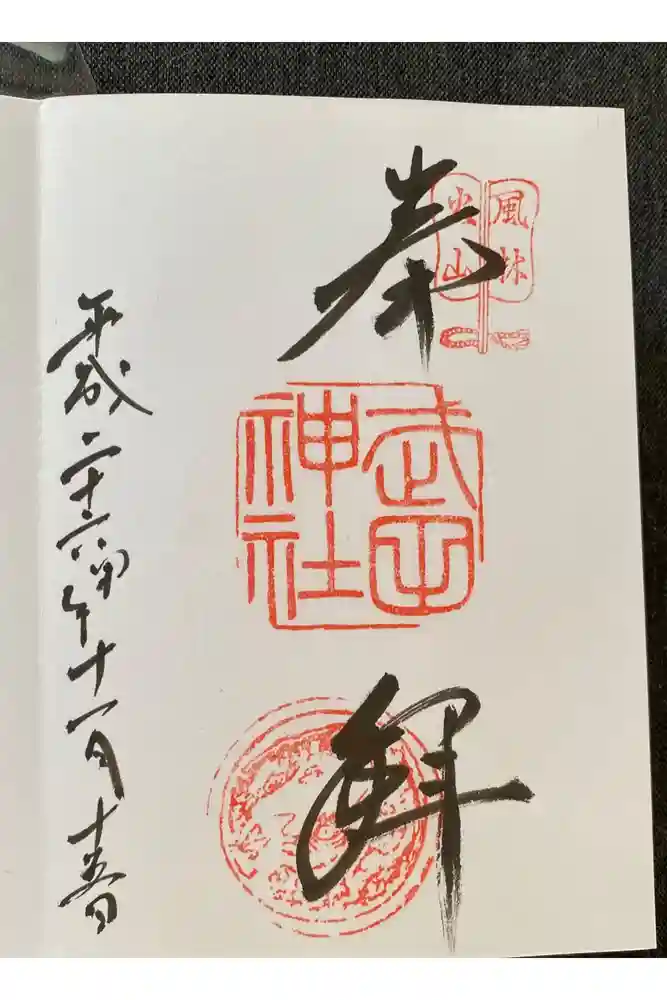 風林
火山
奉拜
武田
神社
平成二十六年十一月十五日